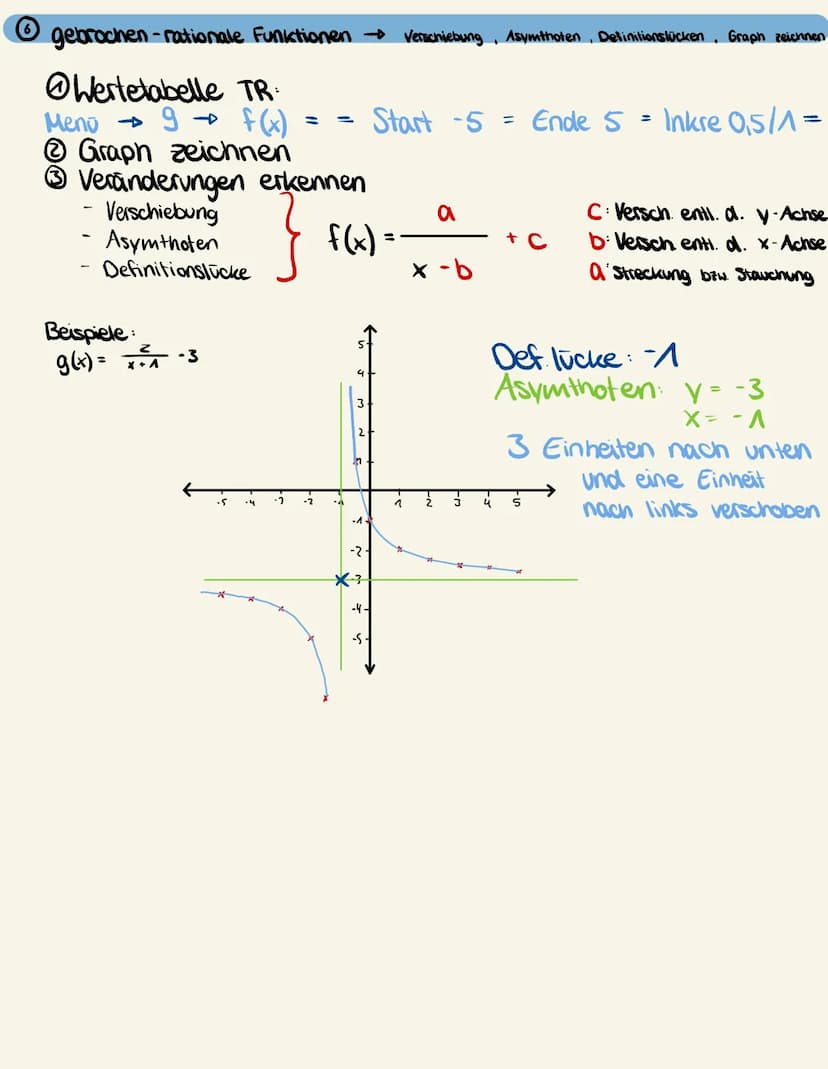 ⑥ gebrochen-rationale Funktionen → Verschiebung, Asymthoten, Definitionslücken, Graph zeichnen
① Wertetabelle TR:
Menü → 9 → f(x) = = Start -5 = Ende 5 = Inkre 0,5/1 =
② Graph zeichnen
③ Veränderungen erkennen
- Verschiebung
- Asymthoten
- Definitionslücke
} f(x) = a / (x - b) + c
c: Versch. entl. d. y-Achse
b: Versch entl. d. x-Achse
a: Streckung bzw. Stauchung
Beispiele:
g(x) = 2 / (x + 1) - 3
5
4
3
2
1
-5 -4 -3 -2 -1 1 2 3 4 5
-1
-2
-3
-4
-5
Def.lücke: -1
Asymthoten: y = -3
x = -1
3 Einheiten nach unten
und eine Einheit
nach links verschoben